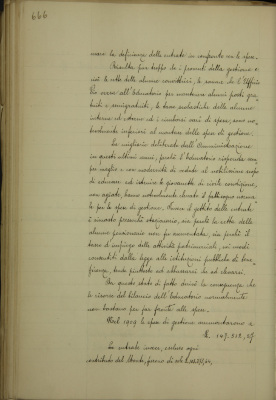 666
mera la deficienza delle entrate in confronto con le spese.
Risulta pur troppo che i proventi della gestione e
cioè le rette delle alunne convittrici, le somme che l'Ufficio
Pio versa all'Educatorio per mantenervi alunne posti gra-
tuiti e semigratuiti, le tasse scolastiche delle alunne
interne ed esterne ed i rimborsi varii di spese, sono no-
tevolmente inferiori al montare delle spese di gestione.
Le migliorie deliberate dall'Amministrazione
in questi ultimi anni, perché l'Educatorio risponda sem-
pre meglio e con modernità di metodo al nobilissimo scopo
di educare ed istruire le giovanette di civile condizione,
non agiate, hanno naturalmente elevato il fabbisogno annua-
le per le spese di gestione. Invece il gettito delle entrate
è rimasto pressoché stazionario, sia perché la retta delle
alunne pensionarie non fu aumentata, sia perché il
tasso d'impiego delle attività patrimoniali, nei modi
consentiti dalla legge alle istituzioni pubbliche di bene-
ficenza, tende piuttosto ad abbassarsi che ad elevarsi.
Da questo stato di fatto deriva la conseguenza che
le risorse del bilancio dell'Educatorio normalmente
non bastano per far fronte alle spese.
Nel 1909 le spese di gestione ammontarono a
L. 147.812,27
Le entrate invece, escluso ogni
contributo del Monte, furono di sole L.